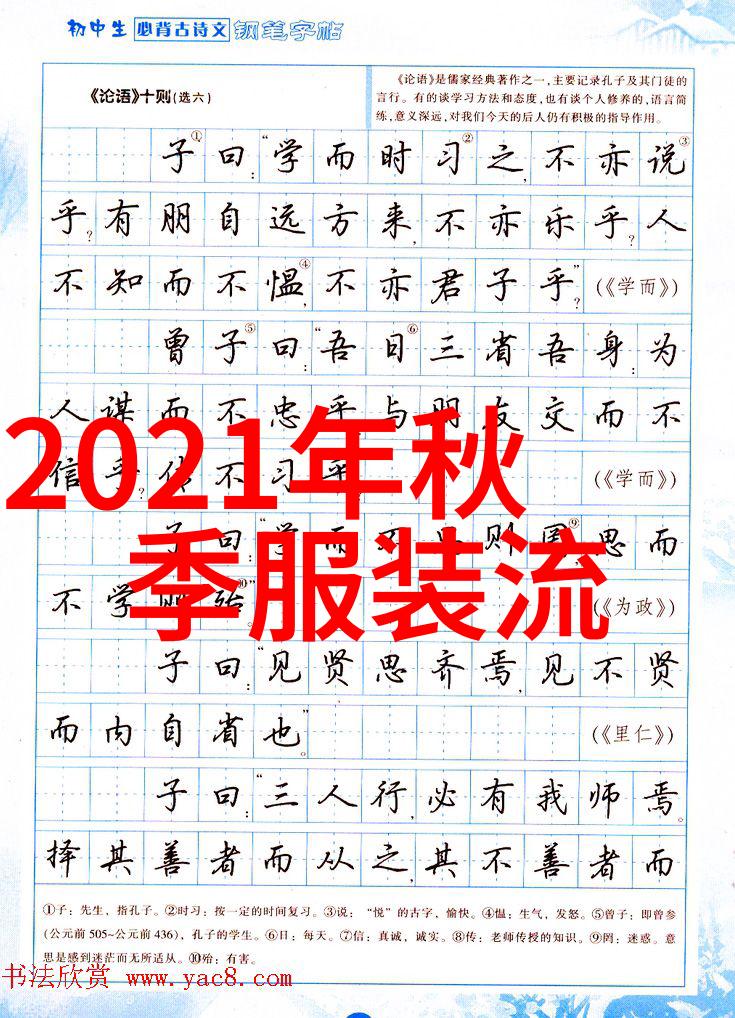 初中生 必背古诗文 钢笔字帖
《论语》十则(选六)
《论语》是儒家经典著作之一,主要记录孔子及其门徒的
言行。有的谈学习方法和态度,也有谈个人修养的,语言简
练,意义深远,对我们今天的后人仍有积极的指导作用。
子①曰:“学而时习②之,不亦说③
乎?有朋自远方来,不亦乐乎?人
不知而不愠④,不亦君子乎”? (《学而》)
曾子⑤曰:“吾日⑥三省吾身:为
人谋而不忠乎 与朋友交而不
信乎?传不习乎 (《学而》)
2021年秋
季服装流
子曰:“学而不 则罔⑨,思而
不学则殆⑩” (《为政》)
子曰:“见贤思齐焉,见不贤
而内自省也。” (《里仁》)
子曰:“三人行,必有我师焉。
择其善者而从之,其不善者而
①子:先生,指孔子。②时习:按一定的时间复习。③说:“悦”的古字,愉快。④愠:生气,发怒。⑤曾子:即曾参
(公元前505~公元前436),孔子的学生。⑥日:每天。⑦信:真诚,诚实。⑧传:老师传授的知识。⑨罔:迷惑。意
思是感到迷茫而无所适从。⑩殆:有害。
书法欣赏 www.yac8.com